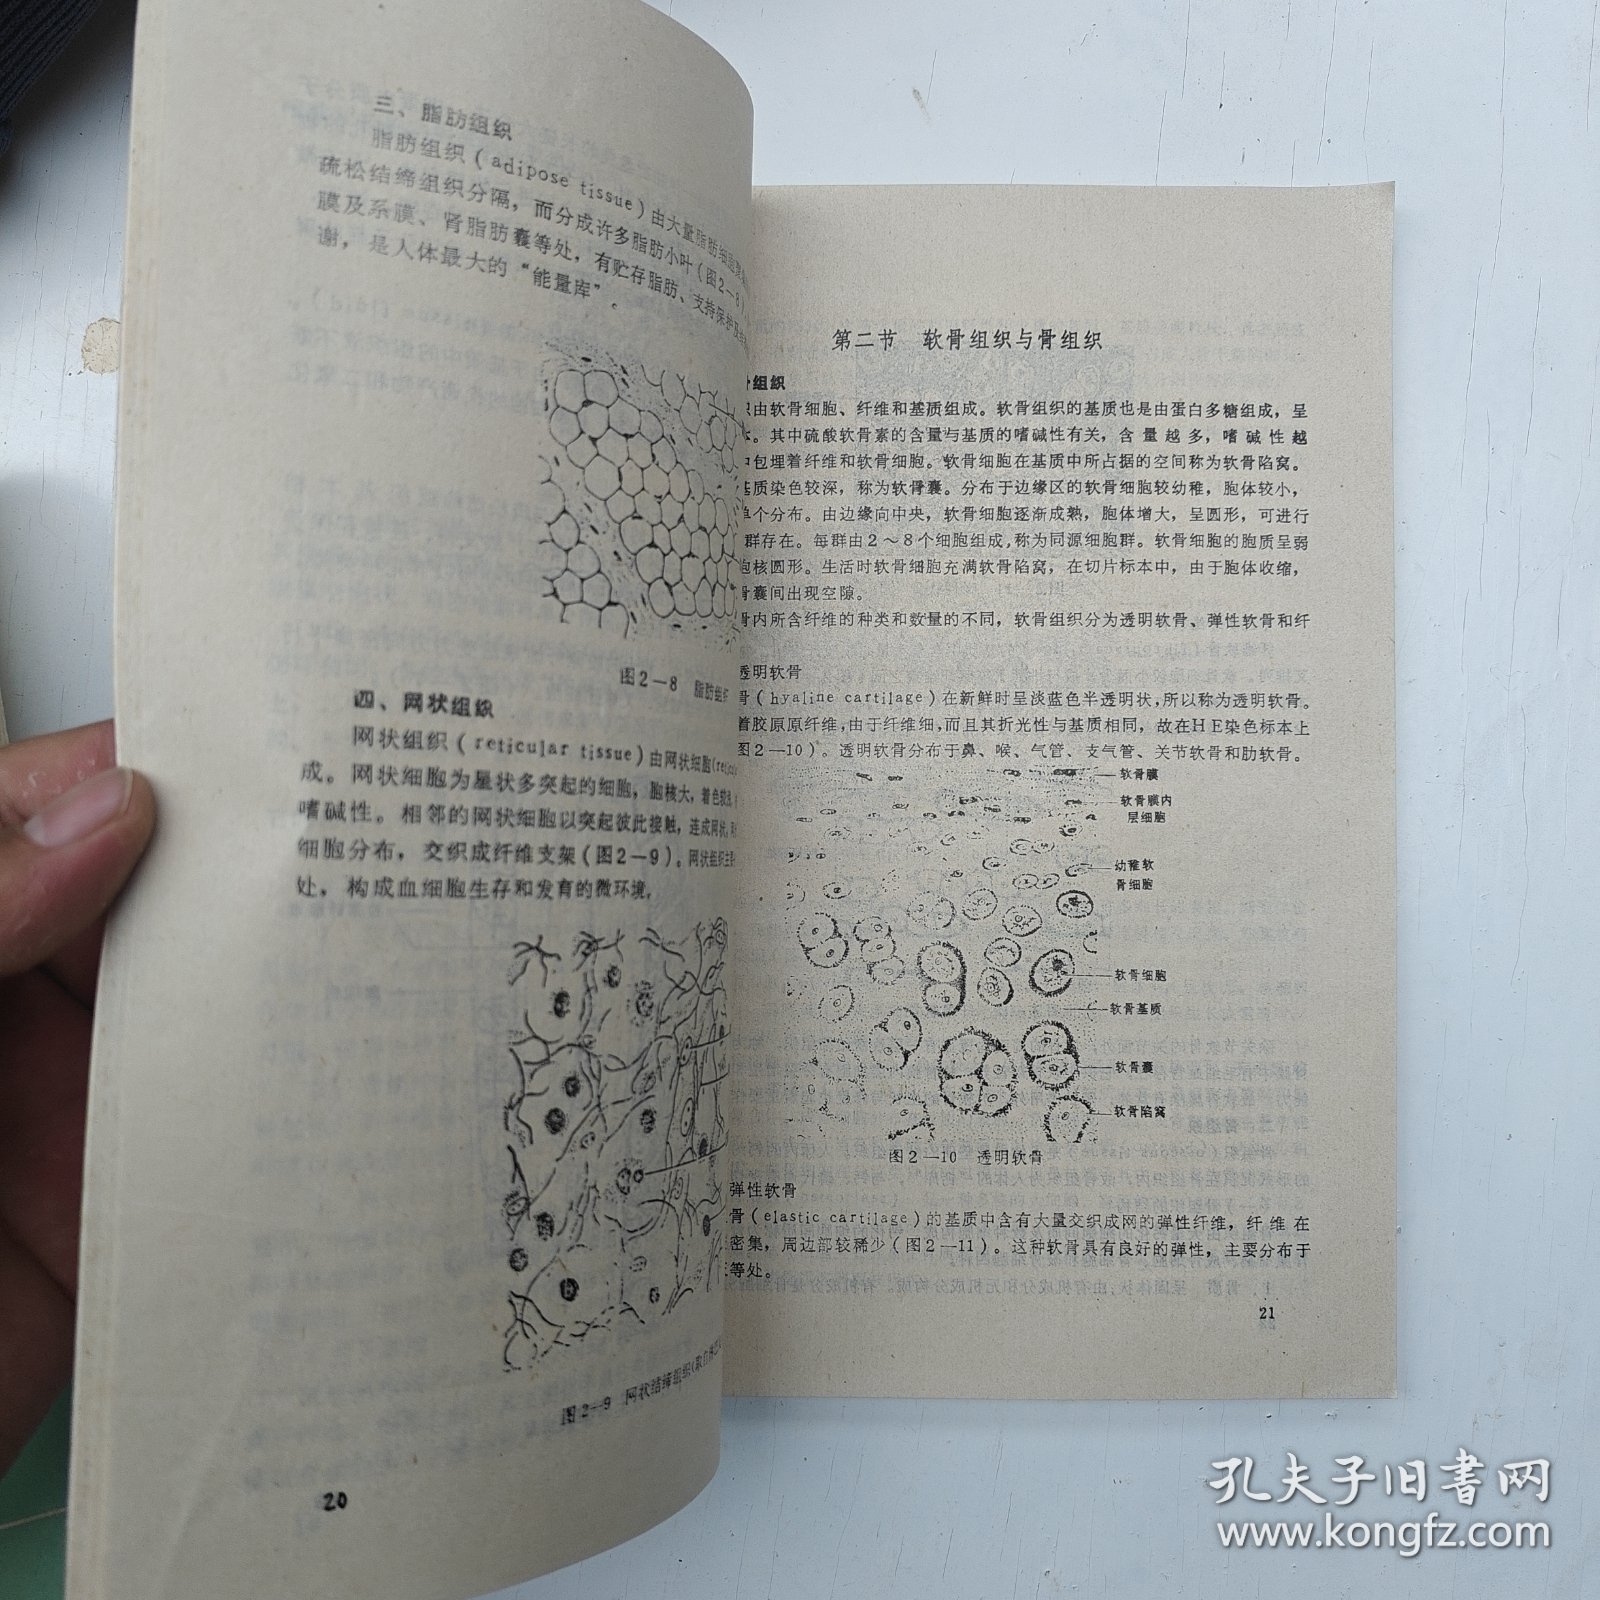 三、脂肪组织
脂肪组织（adipose tissue）由大量脂肪细胞
疏松结缔组织分隔，而分成许多脂肪小叶（图2—8）
膜及系膜、肾脂肪囊等处，有贮存脂肪、支持保护
谢，是人体最大的“能量库”。
图2—8 脂肪组织
四、网状组织
网状组织（reticular tissue）由网状细胞
成。网状细胞为星状多突起的细胞，胞核大，着色较浅，
嗜碱性。相邻的网状细胞以突起彼此接触，连成网状，
细胞分布，交织成纤维支架（图2—9）。网状组织主要
处，构成血细胞生存和发育的微环境，
图2—9 网状结缔组织
20
第二节 软骨组织与骨组织
骨组织
由软骨细胞、纤维和基质组成。软骨组织的基质也是由蛋白多糖组成，呈
其中硫酸软骨素的含量与基质的嗜碱性有关，含量越多，嗜碱性越
中包埋着纤维和软骨细胞。软骨细胞在基质中所占据的空间称为软骨陷窝。
基质染色较深，称为软骨囊。分布于边缘区的软骨细胞较幼稚，胞体较小，
单个分布。由边缘向中央，软骨细胞逐渐成熟，胞体增大，呈圆形，可进行
群存在。每群由2～8个细胞组成，称为同源细胞群。软骨细胞的胞质呈弱
胞核圆形。生活时软骨细胞充满软骨陷窝，在切片标本中，由于胞体收缩，
骨囊间出现空隙。
骨内所含纤维的种类和数量的不同，软骨组织分为透明软骨、弹性软骨和纤
透明软骨
骨（hyaline cartilage）在新鲜时呈淡蓝色半透明状，所以称为透明软骨。
着胶原原纤维，由于纤维细，而且其折光性与基质相同，故在HE染色标本上
图2—10）。透明软骨分布于鼻、喉、气管、支气管、关节软骨和肋软骨。
软骨膜
软骨膜内
层细胞
幼稚软
骨细胞
软骨细胞
软骨基质
软骨囊
软骨陷窝
图2—10 透明软骨
弹性软骨
骨（elastic cartilage）的基质中含有大量交织成网的弹性纤维，纤维在
密集，周边部较稀少（图2—11）。这种软骨具有良好的弹性，主要分布于
等处。
21
孔夫子旧书网
www.kongfz.com